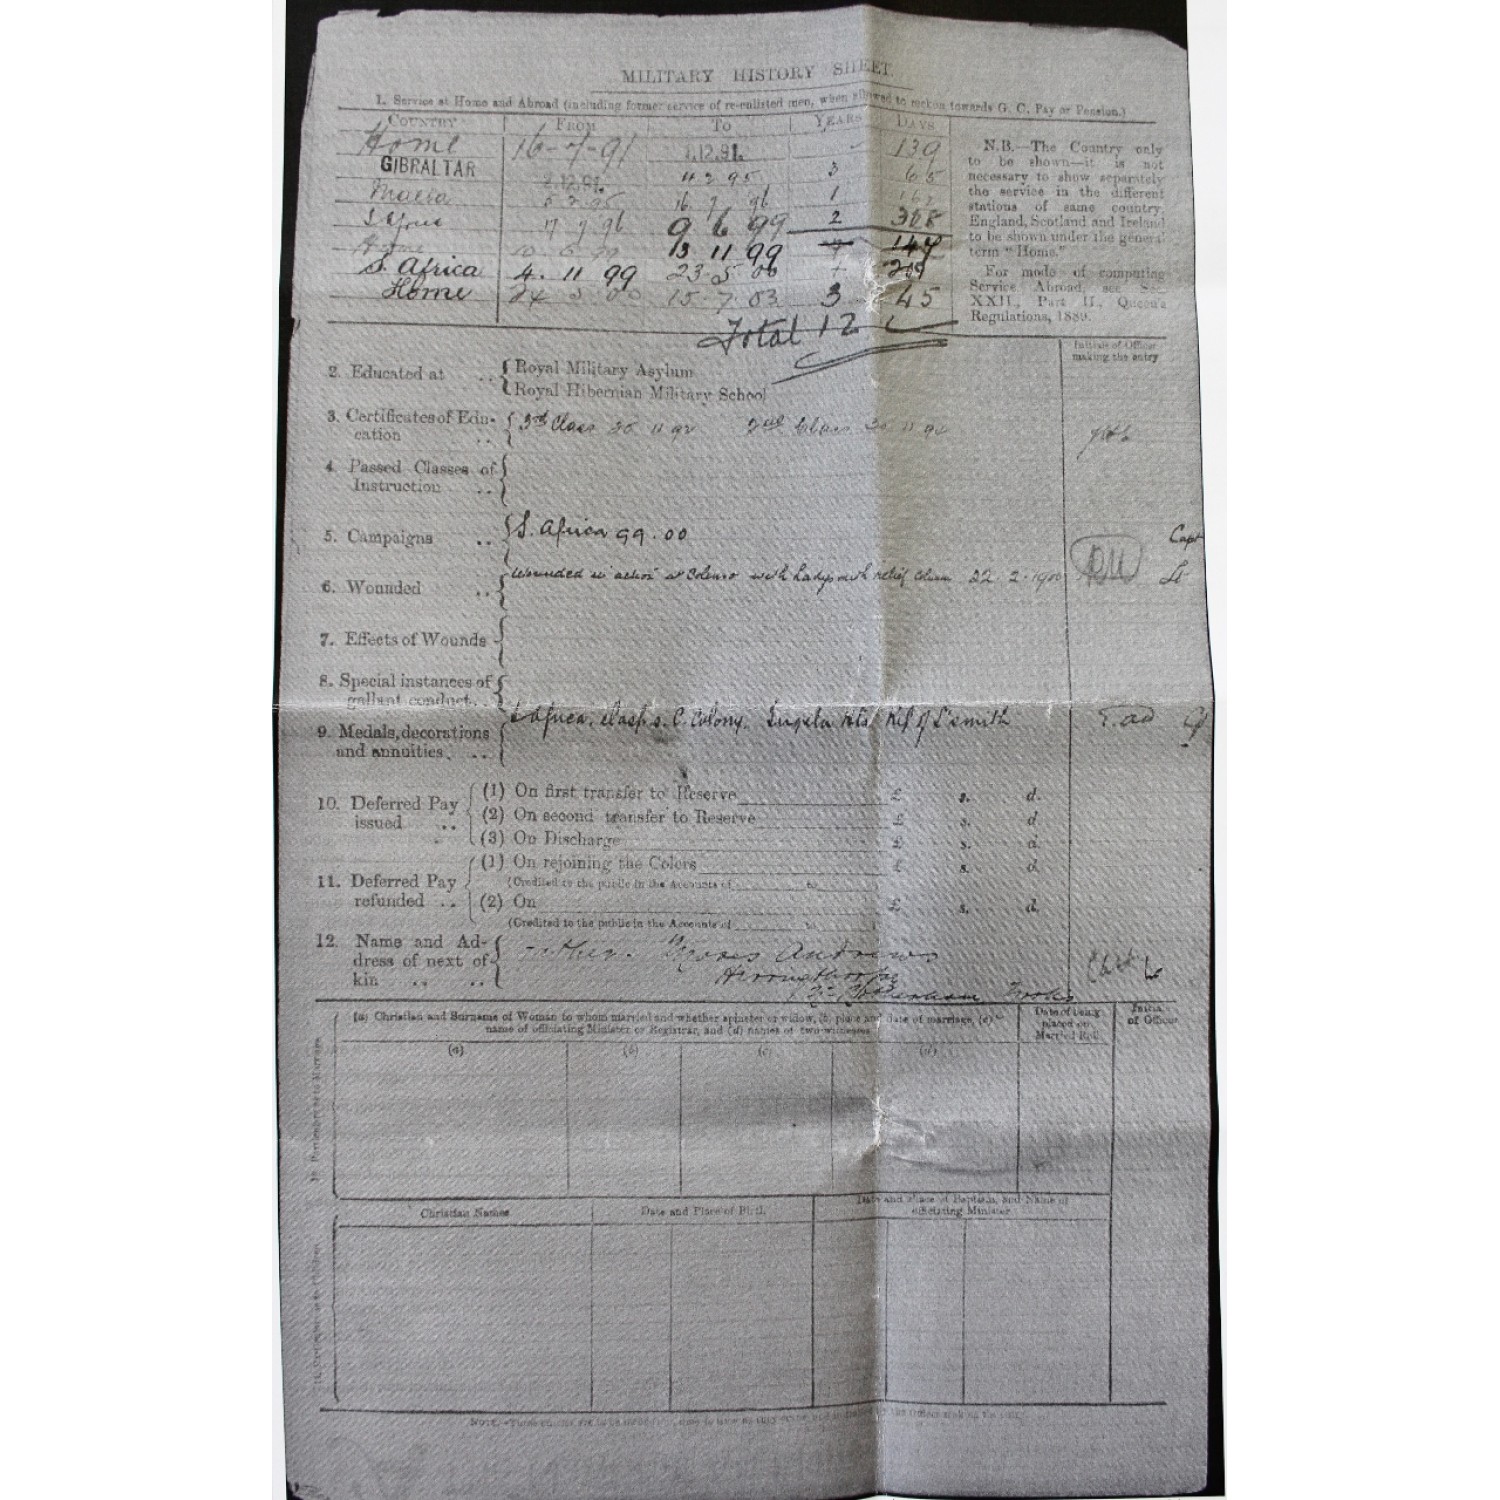 MILITARY HISTORY SHEET.
1. Service at Home and Abroad (including former service of re-enlisted men, when allowed to reckon towards G. C. Pay or Pension.)
COUNTRY FROM TO YEARS DAYS
Home 16-7-91 1.12.91. 139
GIBRALTAR 2.12.91. 4 2 95 3 65
Malta 5 2 95 16 7 96 1 162
S Africa 17 7 96 9 6 99 2 328
Home 10 6 99 13 11 99 147
S. Africa 4. 11 99 23 5 00
Home 24 5 00 15-7 03 3 45
Total 12
N.B.—The Country only
to be shown—it is not
necessary to show separately
the service in the different
stations of same country.
England, Scotland and Ireland
to be shown under the general
term "Home."
For mode of computing
Service Abroad, see Sec.
XXII., Part II., Queen's
Regulations, 1889.
Initials of Officer
making the entry
2. Educated at .. Royal Military Asylum
Royal Hibernian Military School
3. Certificates of Edu-
cation .. 3rd Class 11 92 2nd Class 30 11 92
4. Passed Classes of
Instruction ..
5. Campaigns .. S. Africa 99.00
Capt
6. Wounded .. Wounded in action at Colenso with Ladysmith relief Column 22 2 1900
7. Effects of Wounds
8. Special instances of
gallant conduct..
9. Medals, decorations
and annuities. .. S Africa. clasps. C. Colony. Tugela Hts Rel of L'smith
10. Deferred Pay
issued ..
(1) On first transfer to Reserve £ s. d.
(2) On second transfer to Reserve £ s. d
(3) On Discharge £ s. d.
11. Deferred Pay
refunded ..
(1) On rejoining the Colors £ s. d.
(Credited to the public in the Accounts of to
(2) On £ s. d.
(Credited to the public in the Accounts of to
12. Name and Ad-
dress of next of
kin .. ..
Father. Moses Andrews
Herringthorpe
Rotherham Yorks
(a) Christian and Surname of Woman to whom married and whether spinster or widow, (b) place and date of marriage, (c)
name of officiating Minister or Registrar, and (d) names of two witnesses
Date of being
placed on
Married Roll
Initials
of Officer
(a) (b) (c) (d)
Christian Names Date and Place of Birth. Date and Place of Baptism, and Name of
officiating Minister